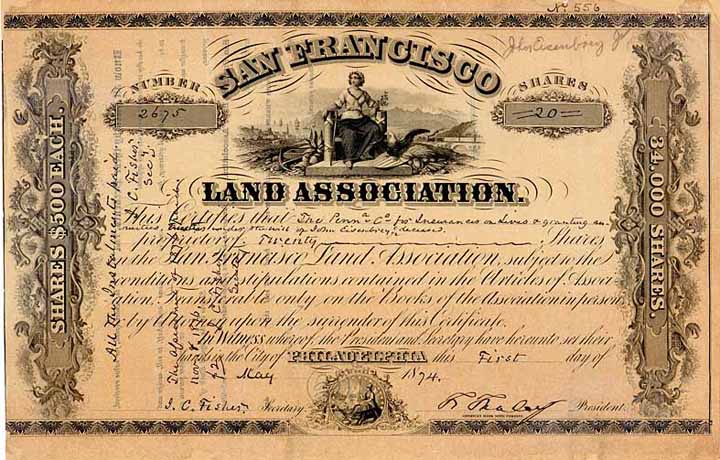 No 556
Jho Eisenbrey Jr
SAN FRANCISCO
NUMBER
2675
SHARES
20
LAND ASSOCIATION.
This Certifies that The Penna Co for Insurances on Lives & granting an-
nuities, under the will of John Eisenbrey deceased
proprietor of Twenty Shares
in the San Francisco Land Association, subject to the
conditions and stipulations contained in the Articles of Associ
ation. Transferable only on the Books of the Association in person
or by Attorney upon the surrender of this Certificate.
In Witness whereof, the President and Secretary have hereunto set their
hands in the City of PHILADELPHIA this First day of
May 1874.
J. C. Fisher Secretary. President.
SHARES $500 EACH.
34,000 SHARES.
All the Instalments paid
C. Fisher
Secy.